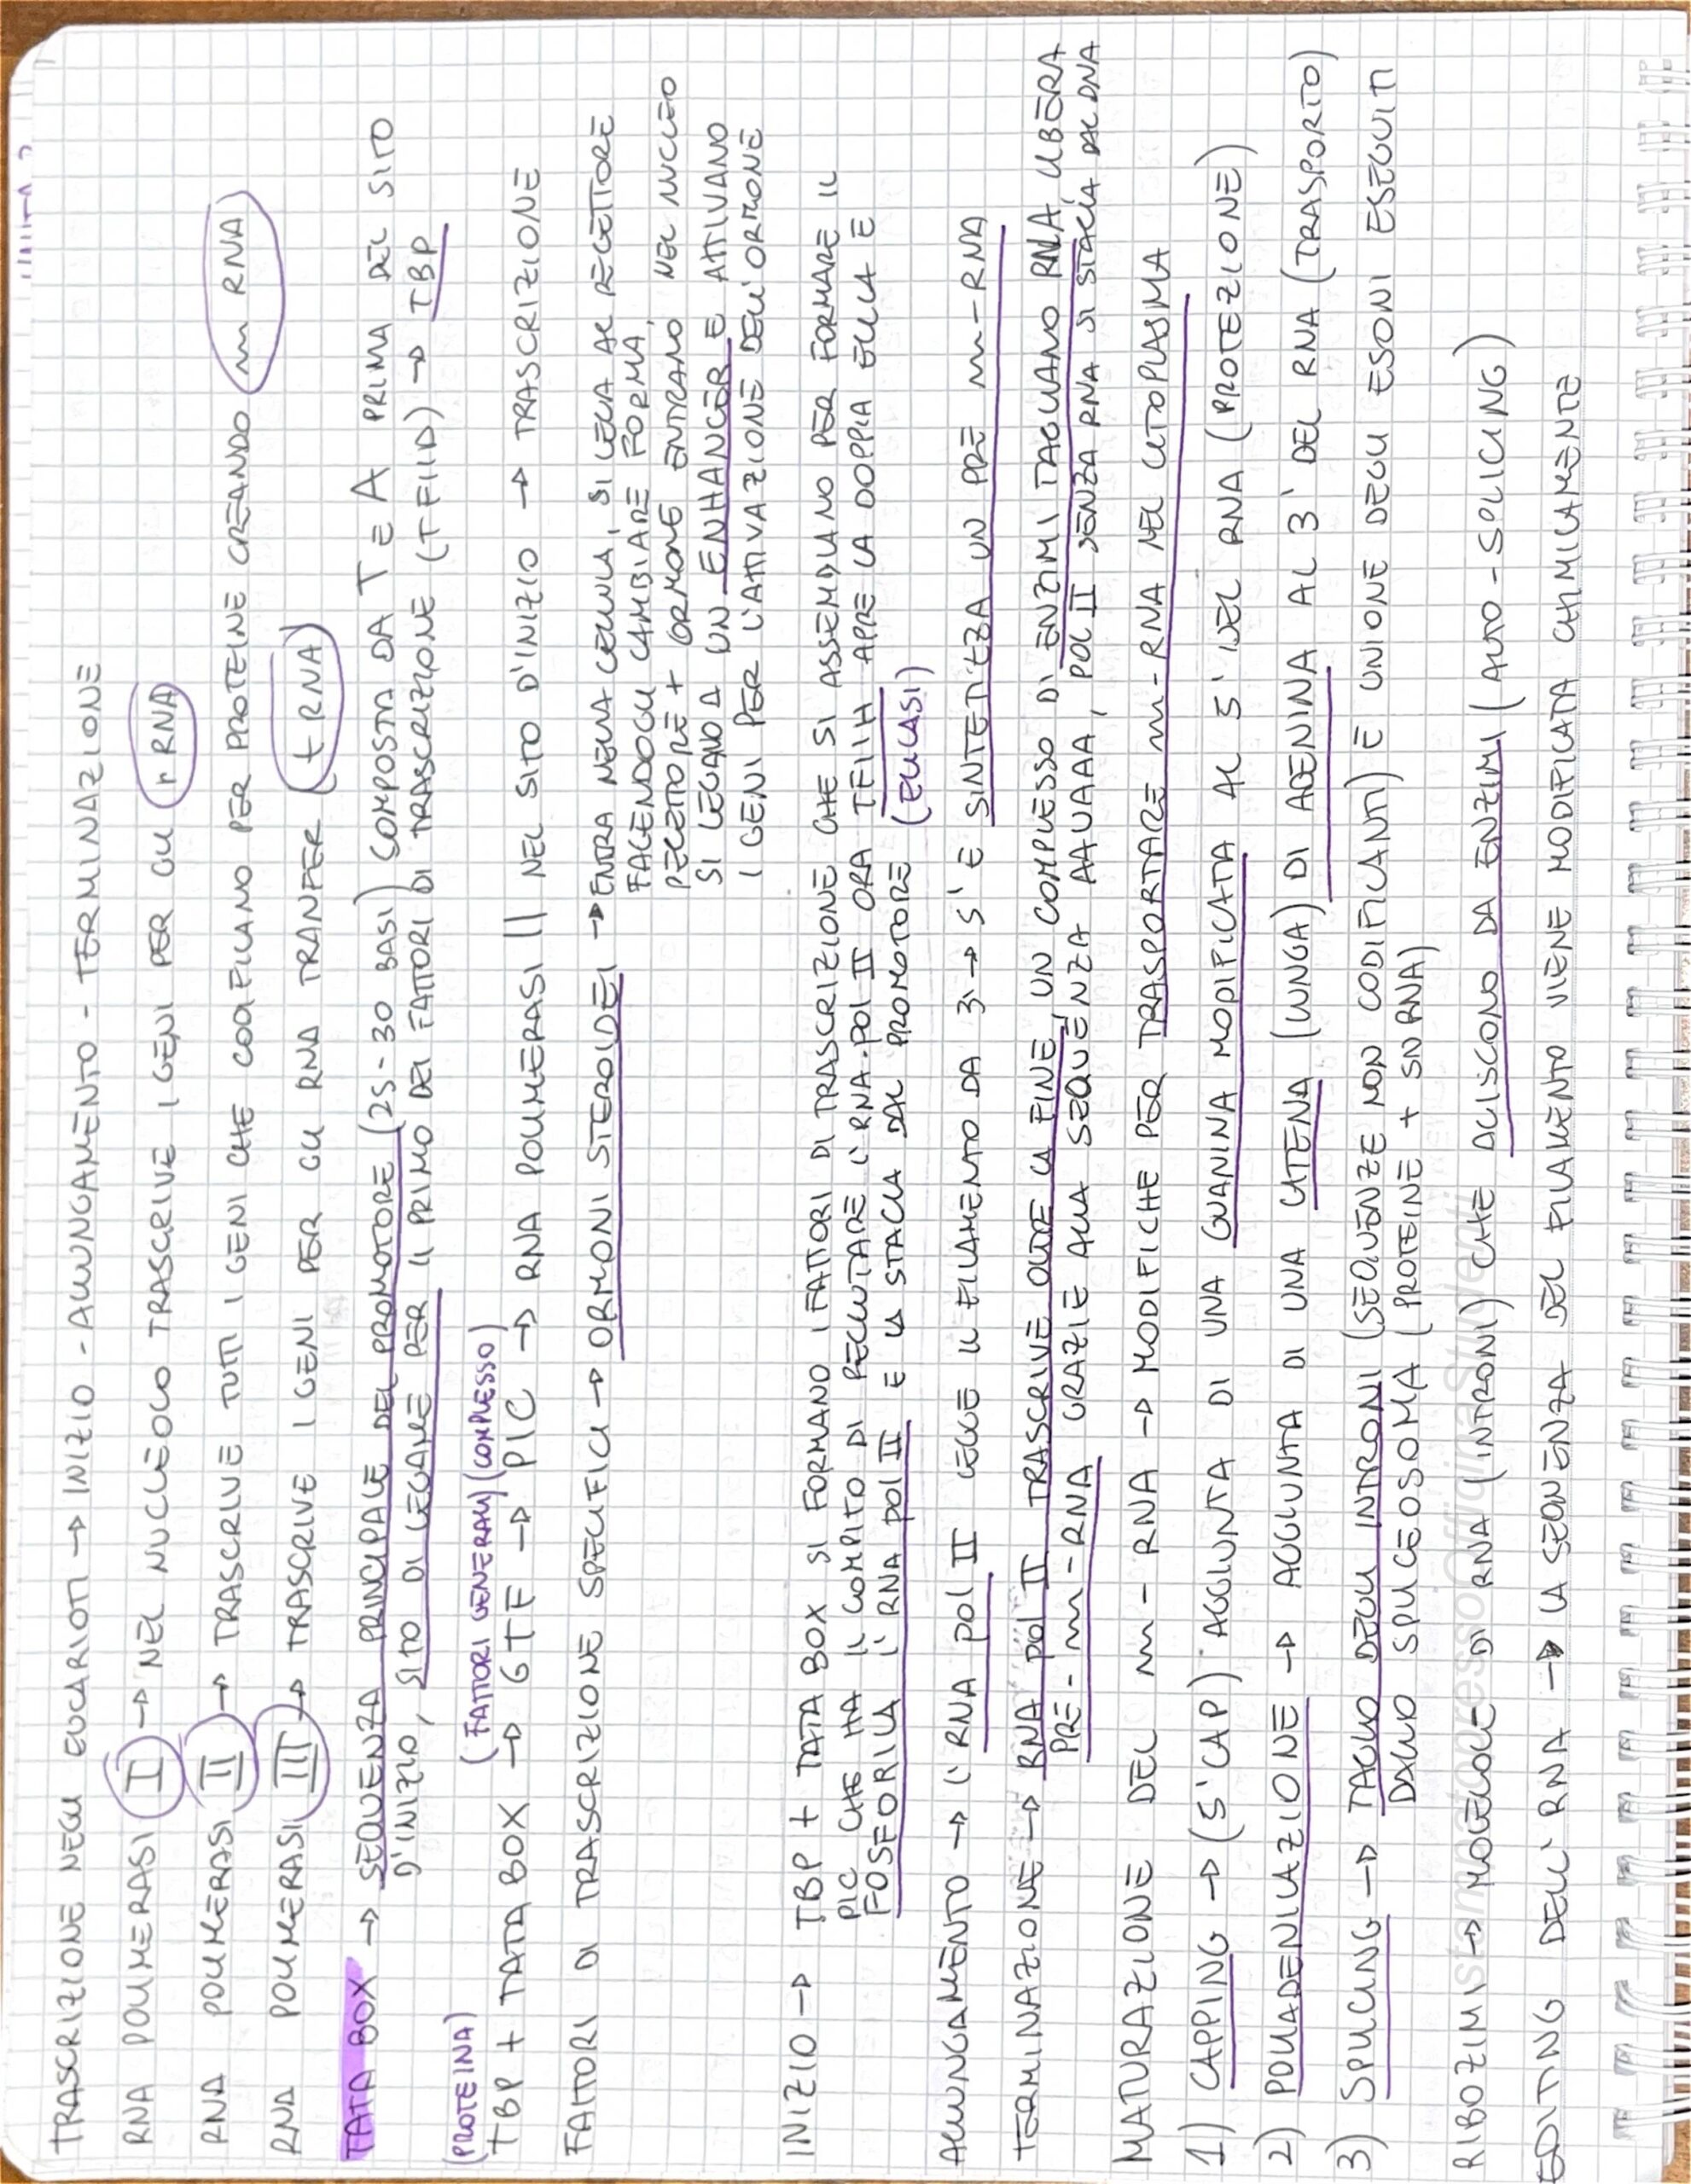 TRASCRIZIONE NEGLI EUCARIOTI → INIZIO - ALLUNGAMENTO - TERMINAZIONE
RNA POLIMERASI I → NEL NUCLEOLO TRASCRIVE I GENI PER GLI r RNA
RNA POLIMERASI II → TRASCRIVE TUTTI I GENI CHE CODIFICANO PER PROTEINE CREANDO m RNA
RNA POLIMERASI III → TRASCRIVE I GENI PER GLI RNA TRANFER (t RNA)
TATA BOX → SEQUENZA PRINCIPALE DEL PROMOTORE (25-30 BASI) COMPOSTA DA T E A PRIMA DEL SITO
D'INIZIO, SITO DI LEGAME PER IL PRIMO DEI FATTORI DI TRASCRIZIONE (TFIID) → TBP
(PROTEINA) (FATTORI GENERALI) (COMPLESSO)
TBP + TATA BOX → GTF → PIC → RNA POLIMERASI II NEL SITO D'INIZIO → TRASCRIZIONE
FATTORI DI TRASCRIZIONE SPECIFICI → ORMONI STEROIDEI → ENTRA NELLA CELLULA, SI LEGA AL RECETTORE
FACENDOGLI CAMBIARE FORMA,
RECETTORE + ORMONE ENTRANO NEL NUCLEO
SI LEGANO A UN ENHANCER E ATTIVANO
I GENI PER L'ATTIVAZIONE DELL'ORMONE
INIZIO → TBP + TATA BOX SI FORMANO I FATTORI DI TRASCRIZIONE CHE SI ASSEMBLANO PER FORMARE IL
PIC CHE HA IL COMPITO DI RECLUTARE L'RNA-POL II ORA TFIIH APRE LA DOPPIA ELICA E
FOSFORILA L'RNA POL II E LA STACCA DAL PROMOTORE (ELICASI)
ALLUNGAMENTO → L'RNA POL II LEGGE IL FILAMENTO DA 3' → 5' E SINTETIZZA UN PRE m-RNA
TERMINAZIONE → RNA POL II TRASCRIVE OLTRE LA FINE, UN COMPLESSO DI ENZIMI TAGLIANO RNA, LIBERA
PRE-m-RNA GRAZIE ALLA SEQUENZA AAUAAA, POL II SENZA RNA SI STACCA DAL DNA
MATURAZIONE DEL m-RNA → MODIFICHE PER TRASPORTARE m-RNA NEL CITOPLASMA
1) CAPPING → (5'CAP) AGGIUNTA DI UNA GUANINA MODIFICATA AL 5' DEL RNA (PROTEZIONE)
2) POLIADENILAZIONE → AGGIUNTA DI UNA CATENA (LUNGA) DI ADENINA AL 3' DEL RNA (TRASPORTO)
3) SPLICING → TAGLIO DEGLI INTRONI (SEQUENZE NON CODIFICANTI) E UNIONE DEGLI ESONI ESEGUITI
DALLO SPLICEOSOMA (PROTEINE + SNRNA)
RIBOZIMI → MOLECOLE DI RNA (INTRONI) CHE AGISCONO DA ENZIMI (AUTO-SPLICING)
EDITING DELL'RNA → LA SEQUENZA DEL FILAMENTO VIENE MODIFICATA CHIMICAMENTE